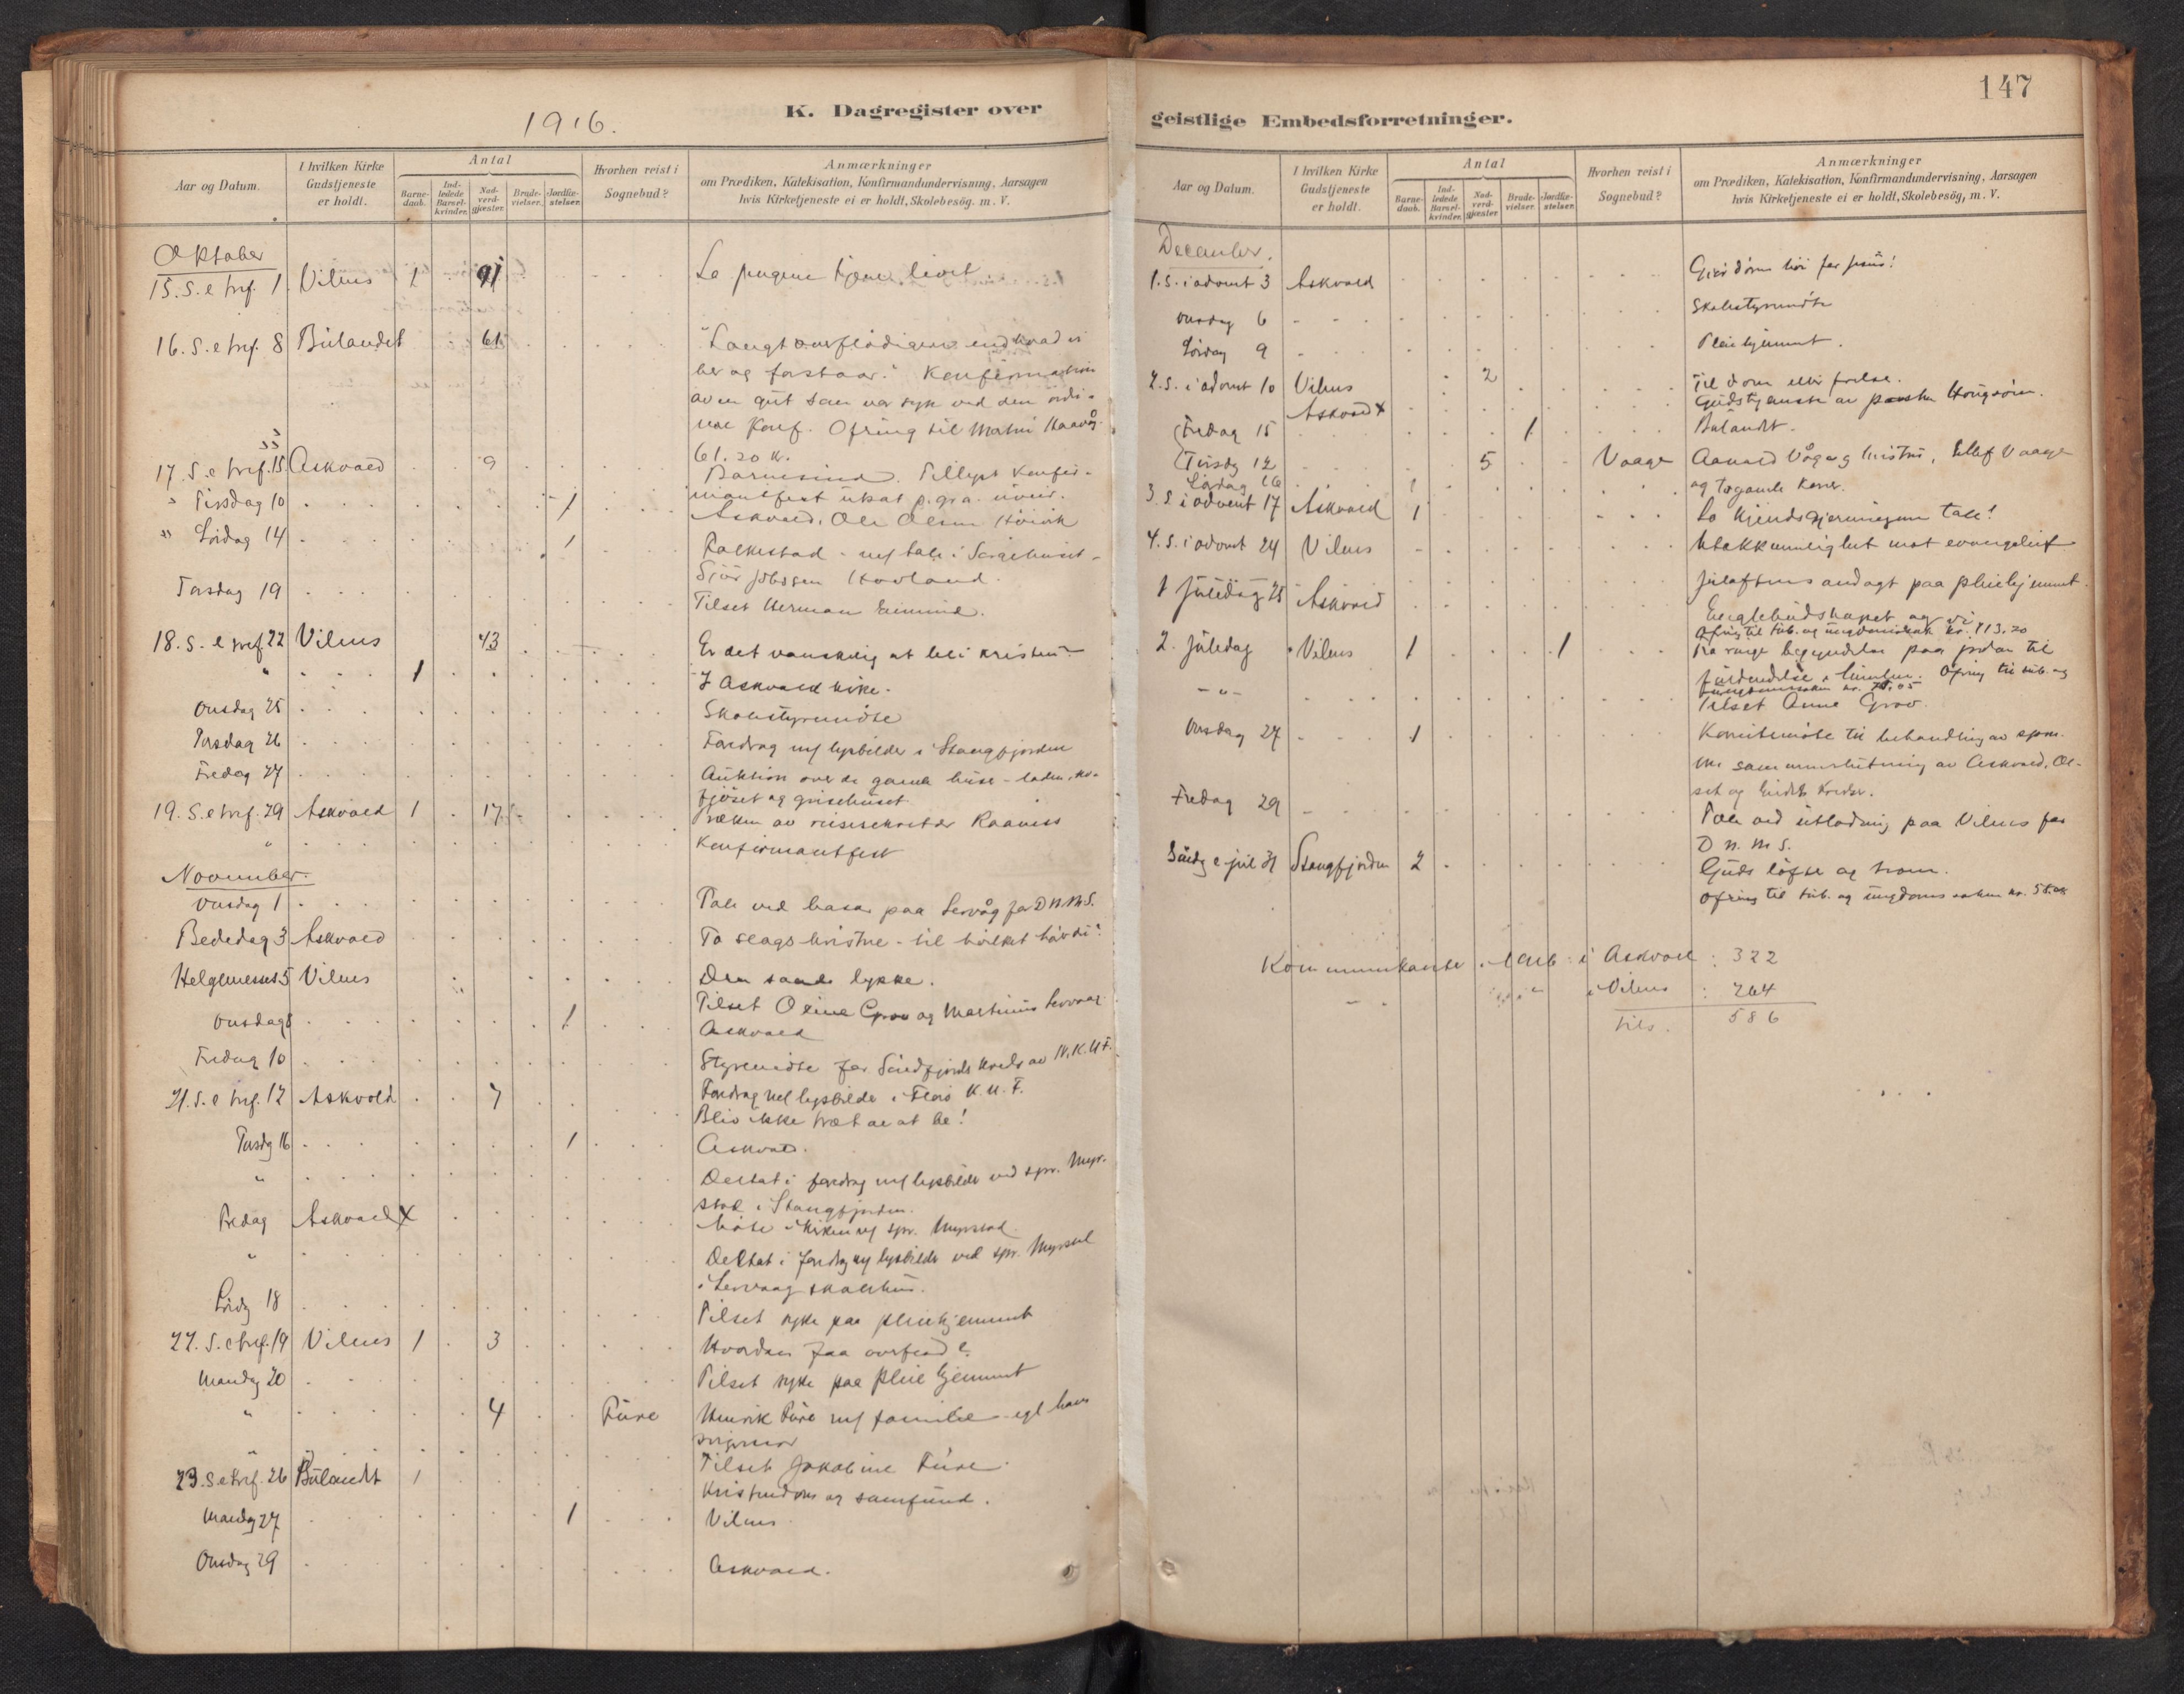 1916.
K. Dagregister over
Aar og Datum.
I hvilken Kirke Gudstjeneste er holdt.
Antal
Barne-daab.
Ind-ledede Barsel-kvinder.
Nad-verd-gjæster.
Brude-vielser.
Jordfæ-stelser.
Hvorhen reist i Sognebud?
Anmærkninger
om Prædiken, Katekisation, Konfirmandundervisning, Aarsagen
hvis Kirketjeneste ei er holdt, Skolebesög. m. V.
Oktober
15. S. e tref. 1. Vilnes 1 91 La pengene tjene livet.
16. S. e tref. 8 Bulandet 61 "Langt overflødigere end hvad vi
ber og forstaar." Konfirmation
av en gut som var syk ved den ordi-
nære Konf. Ofring til
61.20 k.
17. S. e tref. 15 Askvold 9 Barnesind. Tillyst Konfir-
mantfest utsat p. gra. uveir.
" Tirsdag 10 1 Askvold. Ole Olsen
" Lördag 14 1 Folkestad - m/ tale i Sörgehuset -
Hovland.
Torsdag 19 Tilset Herman
18. S. e tref. 22 Vilnes 43 Er det vanskelig at bli kristen?
" 1 I Askvold kirke.
Onsdag 25 Skolestyremöte
Torsdag 26 Foredrag m/ lysbilder i Stangfjorden
Fredag 27 Auktion over de gamle huse - laden,
fjöset og grisehuset
19. S. e tref. 29 Askvold 1 17 Præken av reisesekretær
" Konfirmantfest
November.
Onsdag 1 Tale ved basar paa Lervåg for D.N.M.S.
Bededag 3 Askvold To slags kristne - til hvilket hör du?
Helgemesse 5 Vilnes Den sande lykke.
Tilset Oline Grov og Martinus Lervaag
Onsdag 8 1 Askvold
Fredag 10 Styremöte for Söndfjords Kreds av N.K.U.F.
Foredrag m/ lysbilder i Florö K.U.F.
21. S. e tref. 12 Askvold 7 Bliv ikke træt av at be!
Torsdg 16 1 Askvold.
" Deltat i foredrag m/ lysbilder ved spr. Myr-
stad i Stangfjorden.
Fredag Askvold X Möte i kirken m/ spr. Myrstad
" Deltat i foredrag m/ lysbilder ved spr. Myrstad
i Lervaag skolehus.
Lördg 18 Tilset syke paa pleiehjemmet
22. S. e tref. 19 Vilnes 1 3 Hvordan faa
Mandg 20 Tilset syke paa pleiehjemmet
" 4 Fure Henrik Fure m/ familie
" Tilset Jakobine Fure.
23. S. e tref. 26 Bulandet 1 Kristendom og samfund.
Mandag 27 1 Vilnes
Onsdag 29 Askvold.
147
geistlige Embedsforretninger.
Aar og Datum.
I hvilken Kirke Gudstjeneste er holdt.
Antal
Barne-daab.
Ind-ledede Barsel-kvinder.
Nad-verd-gjæster.
Brude-vielser.
Jordfæ-stelser.
Hvorhen reist i Sognebud?
Anmærkninger
om Prædiken, Katekisation, Konfirmandundervisning, Aarsagen
hvis Kirketjeneste ei er holdt, Skolebesög, m. V.
December.
1. S. i advent 3 Askvold for Jesus!
Onsdag 6 Skolestyremöte
Lördag 9 Pleiehjemmet.
2. S. i advent 10 Vilnes 2 Til dom eller frelse.
Askvold X Gudstjeneste av
Fredag 15 1 Bulandet.
Tirsdg 12 5 Vaage
Lördag 16 1 og to gamle koner.
3. S. i advent 17 Askvold 1 La kjendsgjerningene tale!
4. S. i advent 24 Vilnes Utakknemlighet mot evangeliet
Juleaftens andagt paa pleiehjemmet.
1 Juledag 25 Askvold Englebudskapet og vi
Ofring til sub. og ungdomssak kr. 113.20
2. Juledag Vilnes 1 1 Fra ringe begyndelse paa jorden til
fuldendelse i himlen. Ofring til sub. og
ungdomssaken kr.
- " - Tilset Anne Grov.
Onsdag 27 1 Komitemöte til behandling av spm.
om sammenslutning av Askvold,
og kredser.
Fredag 29 Tale ved utlodning paa Vilnes for
D.N.M.S.
Söndg e. jul 31 Stangfjorden 2 Guds löfter og troen.
Ofring til sub. og ungdoms saken kr.
Kommunikanter i 1916 i Askvold : 322
- " - " i Vilnes : 264
tils. 586